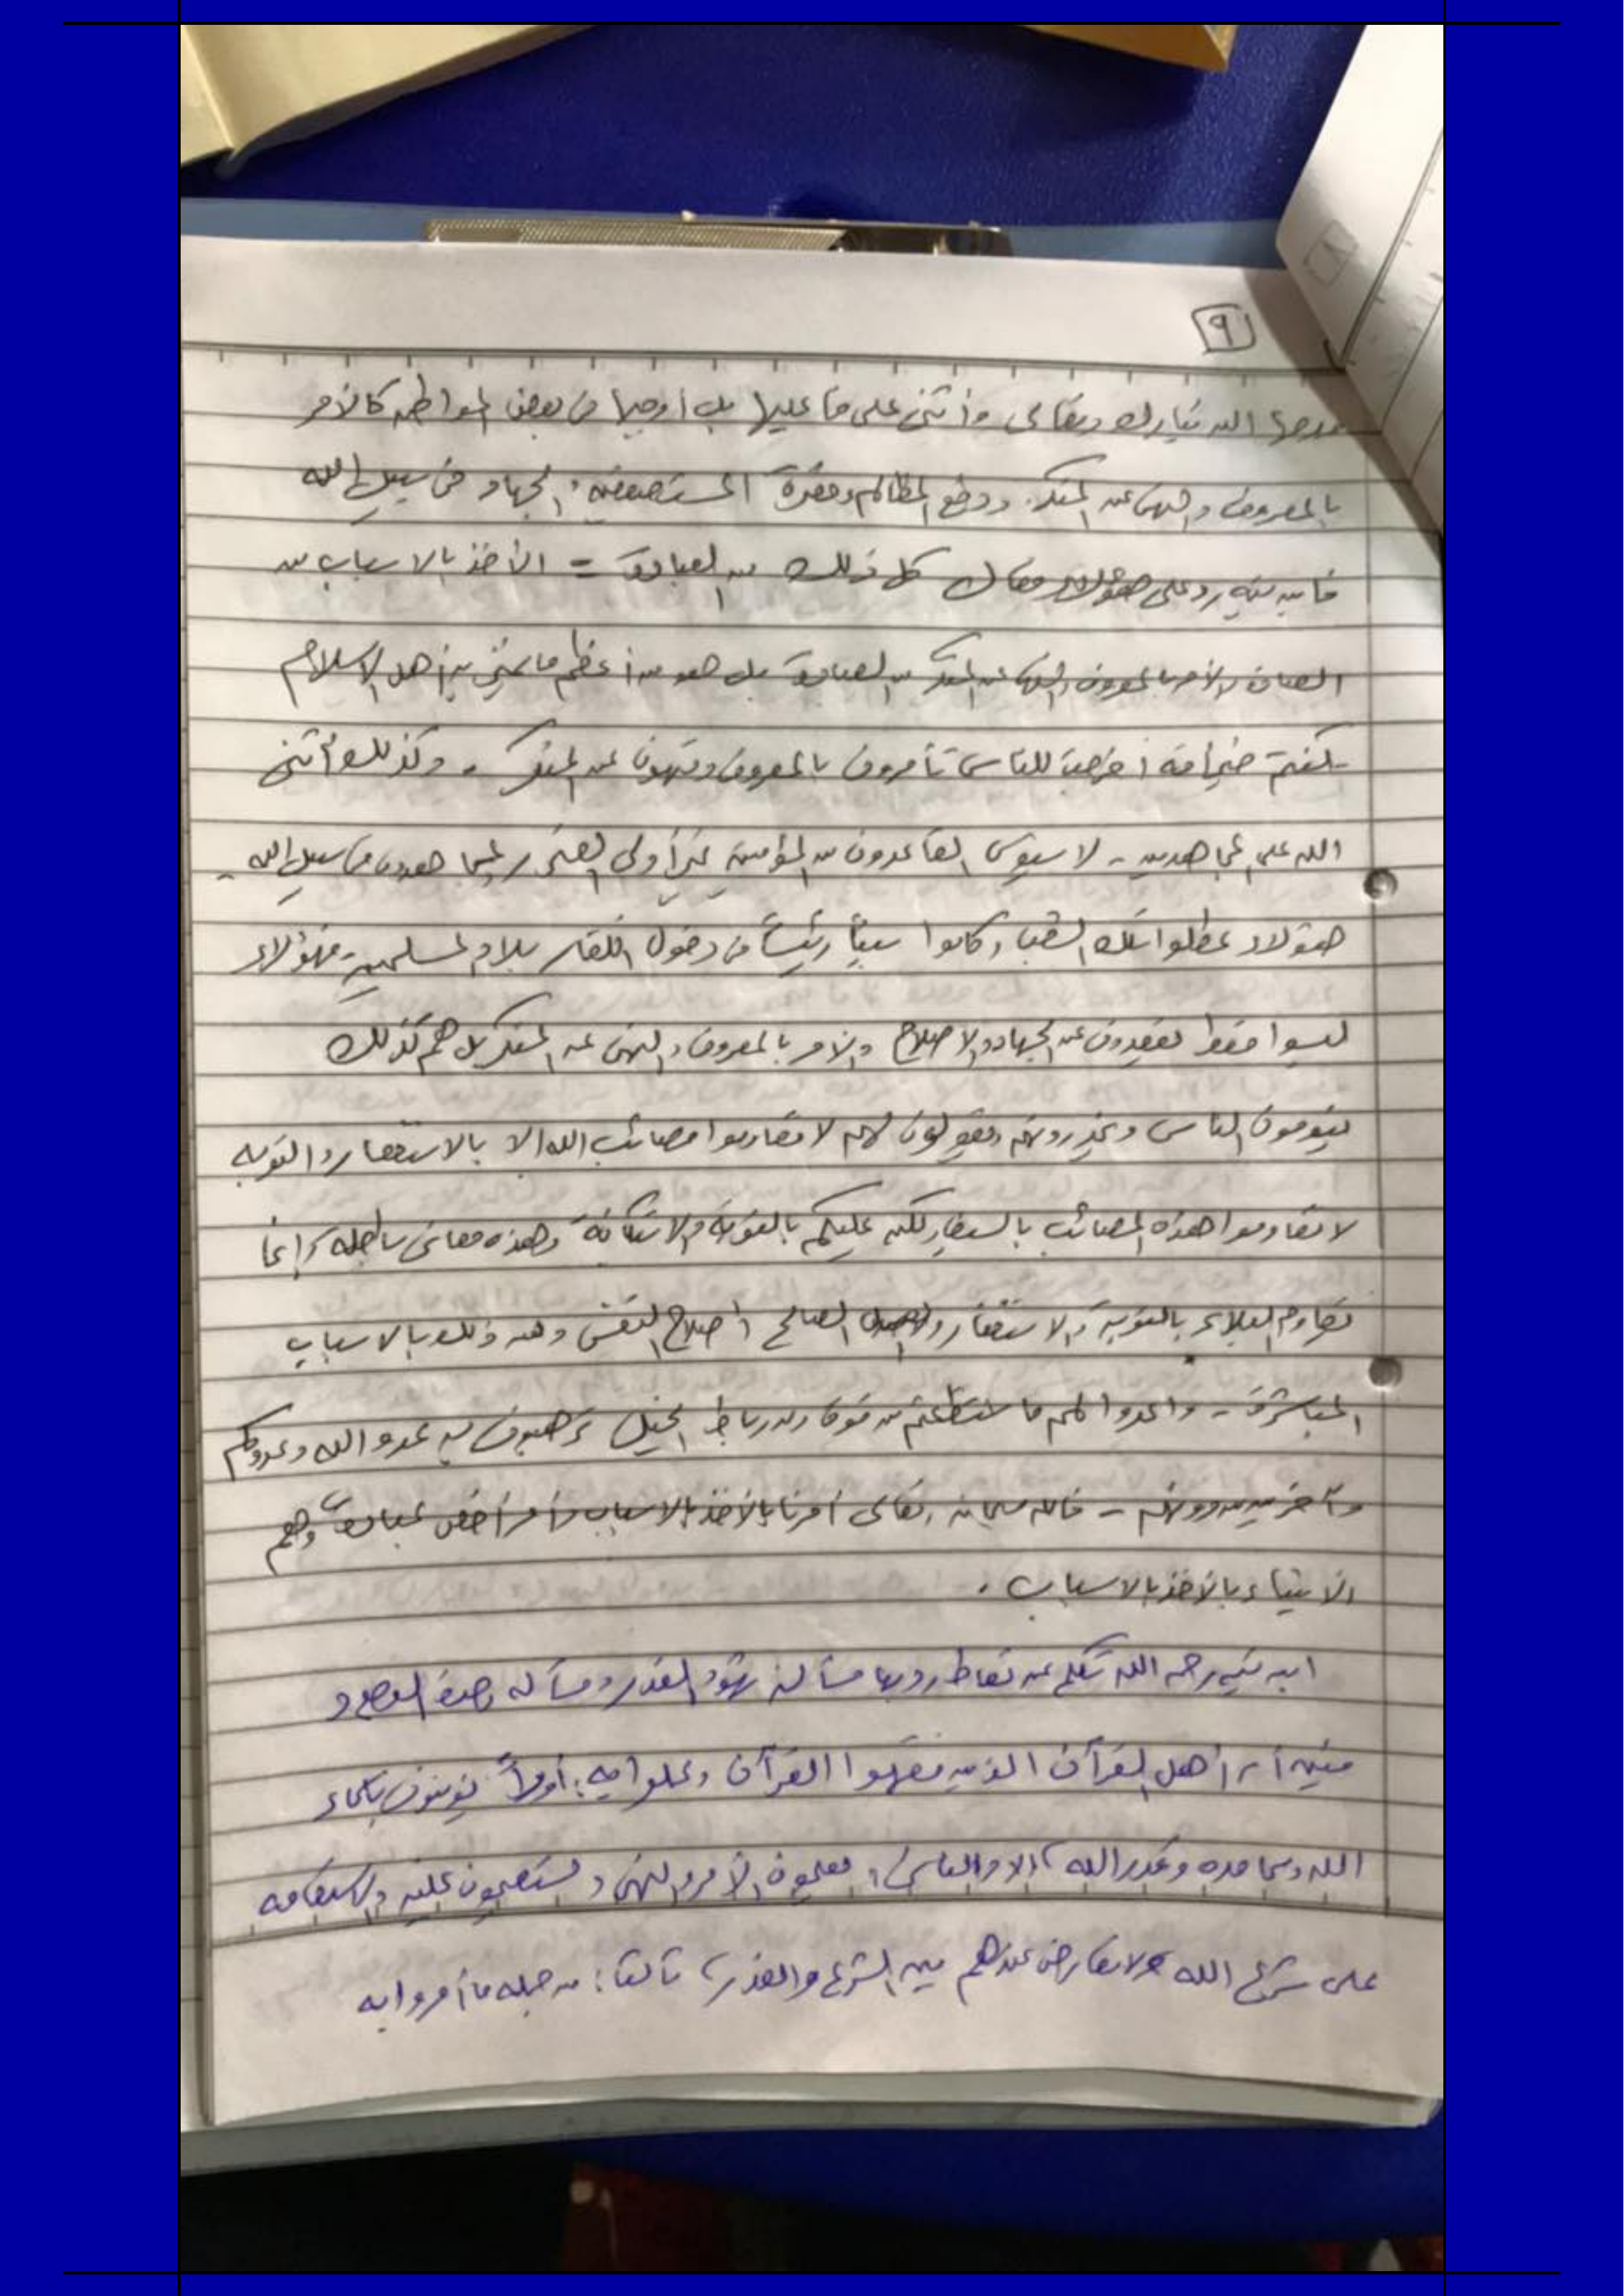 ٩
مدحها الله تبارك وتعالى وأثنى على فاعليها بل أوجبها في بعض المواطن كالأمر
بالمعروف والنهي عن المنكر ودفع المظالم ونصرة المستضعفين والجهاد في سبيل الله
فابن تيمية رد على هؤلاء وقال كل ذلك من العبادة - الأخذ بالاسباب من
العبادة والأمر بالمعروف والنهي عن المنكر من العبادة بل هو من أعظم ما يميز به أهل الاسلام
- كنتم خير أمة أخرجت للناس تأمرون بالمعروف وتنهون عن المنكر - وكذلك أثنى
الله على المجاهدين - لا يستوي القاعدون من المؤمنين غير أولي الضرر والمجاهدون في سبيل الله -
هؤلاء عطلوا تلك وكانوا سبباً رئيساً في دخول الكفار بلاد المسلمين - فهؤلاء
ليسوا فقط يقعدون عن الجهاد والاصلاح والأمر بالمعروف والنهي عن المنكر بل هم كذلك
الناس ويخذرونهم ويقولون لهم لا تقاوموا مصائب الله الا بالاستغفار والتوبه
لا تقاوموا هذه المصائب لكن عليكم بالتوبة والاستكانة وهذه معاني باطله وإنما
نقاوم البلاء بالتوبة والاستغفار والعمل الصالح وإصلاح النفس ومع ذلك بالاسباب
المباشرة - واعدوا لهم ما استطعتم من قوة ومن رباط الخيل ترهبون به عدو الله وعدوكم
وآخرين من دونهم - فالله سبحانه وتعالى أمرنا بالأخذ بالاسباب وأمر أخص عباده وهم
الأنبياء بالأخذ بالاسباب .
ابن تيمية رحمه الله تكلم عن نقاط ومنها مسألة شهود القدر ومسألة
فبين أن أهل القرآن الذين فقهوا القرآن وعملوا به : أولاً يؤمنون
الله وقدر الله الأمر والنهي و ويستعينون عليه والاستقامه
على شرع الله ولا تعارض عندهم بين الشرع والقدر ، ثالثا : من جملة ما أمروا به